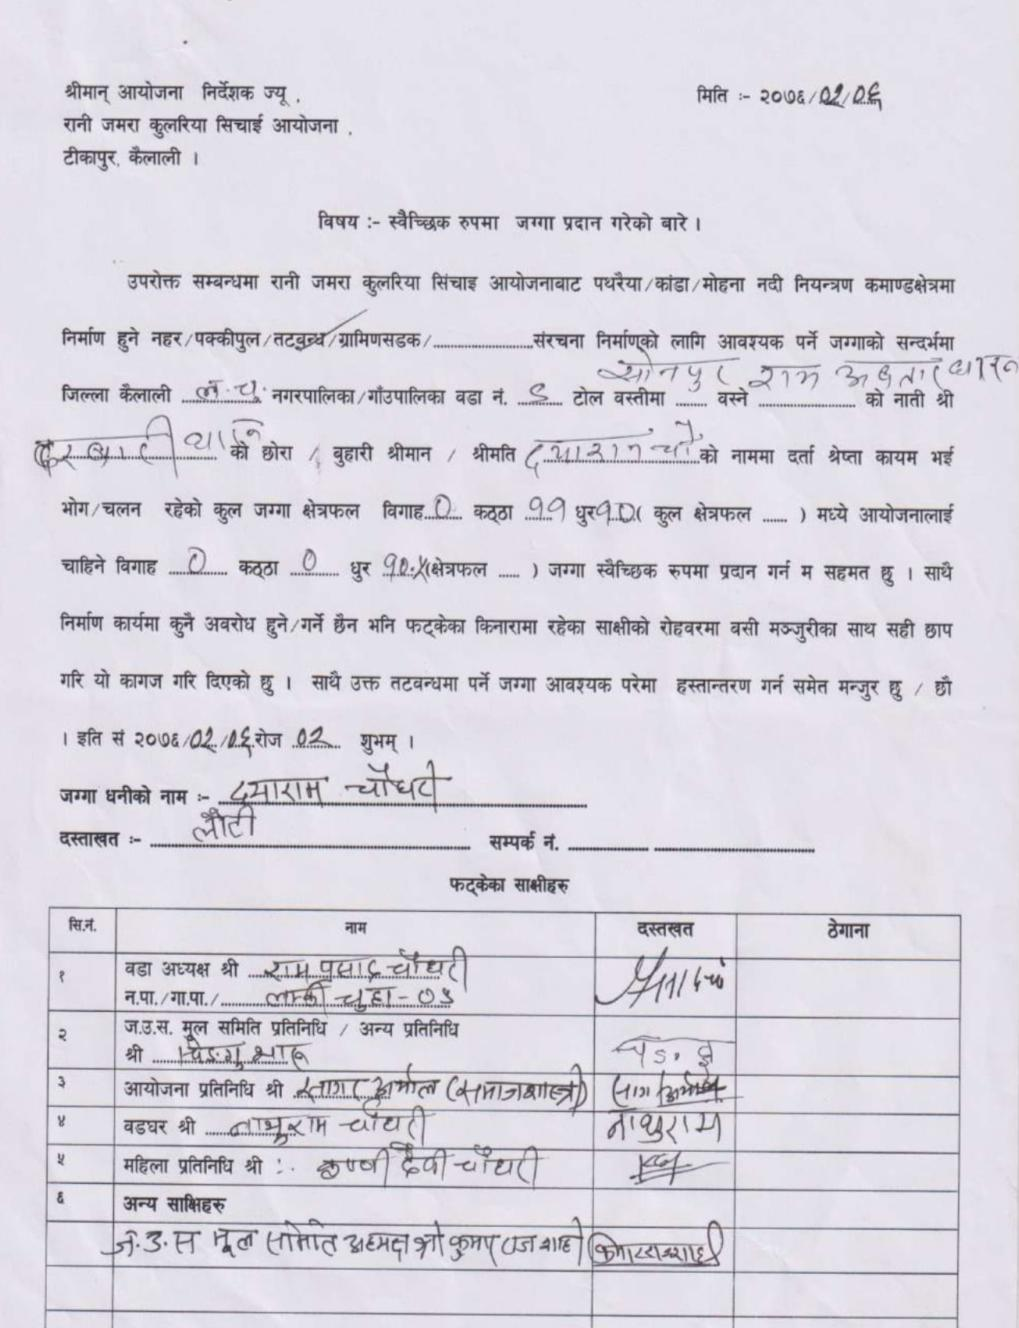 श्रीमान् आयोजना निर्देशक ज्यू , मिति :- २०७६/02/0६
रानी जमरा कुलरिया सिचाई आयोजना ,
टीकापुर, कैलाली ।
विषय :- स्वैच्छिक रुपमा जग्गा प्रदान गरेको बारे ।
उपरोक्त सम्बन्धमा रानी जमरा कुलरिया सिंचाइ आयोजनाबाट पथरैया/कांडा/मोहना नदी नियन्त्रण कमाण्डक्षेत्रमा
निर्माण हुने नहर/पक्कीपुल/तटबन्ध/ग्रामिणसडक/....................संरचना निर्माणको लागि आवश्यक पर्ने जग्गाको सन्दर्भमा
सोनपुर राम अवतार थारु
जिल्ला कैलाली ल.चु. नगरपालिका/गाँउपालिका वडा नं. टोल वस्तीमा ....... वस्ने .................... को नाती श्री
को छोरा / बुहारी श्रीमान / श्रीमति दयाराम चौ को नाममा दर्ता श्रेष्ता कायम भई
भोग/चलन रहेको कुल जग्गा क्षेत्रफल विगाह 0 कठ्ठा 99 धुर 90( कुल क्षेत्रफल ...... ) मध्ये आयोजनालाई
चाहिने विगाह 0 कठ्ठा 0 धुर (क्षेत्रफल ..... ) जग्गा स्वैच्छिक रुपमा प्रदान गर्न म सहमत छु । साथै
निर्माण कार्यमा कुनै अवरोध हुने/गर्ने छैन भनि फट्केका किनारामा रहेका साक्षीको रोहवरमा वसी मञ्जुरीका साथ सही छाप
गरि यो कागज गरि दिएको छु । साथै उक्त तटवन्धमा पर्ने जग्गा आवश्यक परेमा हस्तान्तरण गर्न समेत मन्जुर छु / छौ
। इति सं २०७६/02/0६ रोज 02 शुभम् ।
जग्गा धनीको नाम :- दयाराम चौधरी
दस्ताखत :- सम्पर्क नं. ............ ....................
फट्केका साक्षीहरु
सि.नं. नाम दस्तखत ठेगाना
१ वडा अध्यक्ष श्री राम प्रसाद चौधरी
न.पा./गा.पा./ लम्की चुहा-0५
२ ज.उ.स. मूल समिति प्रतिनिधि / अन्य प्रतिनिधि
श्री
३ आयोजना प्रतिनिधि श्री सागर अर्माल (समाजशास्त्री)
४ वडघर श्री नाथुराम चौधरी नाथुराम
५ महिला प्रतिनिधि श्री :. कृष्णी देवी चौधरी
६ अन्य साक्षिहरु
ज.उ.स मूल समिति अध्यक्ष श्री कुमार राज शाही